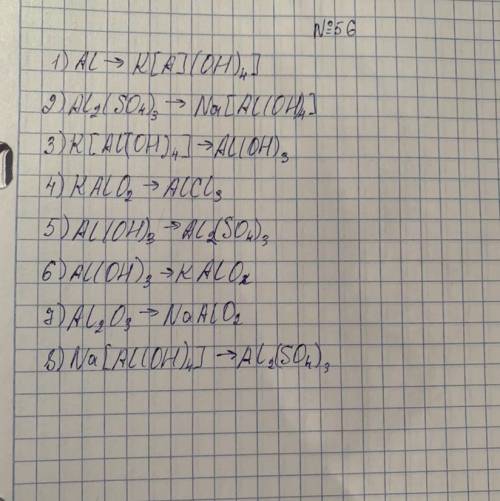 №56
1) Al → K[Al(OH)₄]
2) Al₂(SO₄)₃ → Na[Al(OH)₄]
3) K[Al(OH)₄] → Al(OH)₃
4) KAlO₂ → AlCl₃
5) Al(OH)₃ → Al₂(SO₄)₃
6) Al(OH)₃ → KAlO₂
7) Al₂O₃ → NaAlO₂
8) Na[Al(OH)₄] → Al₂(SO₄)₃